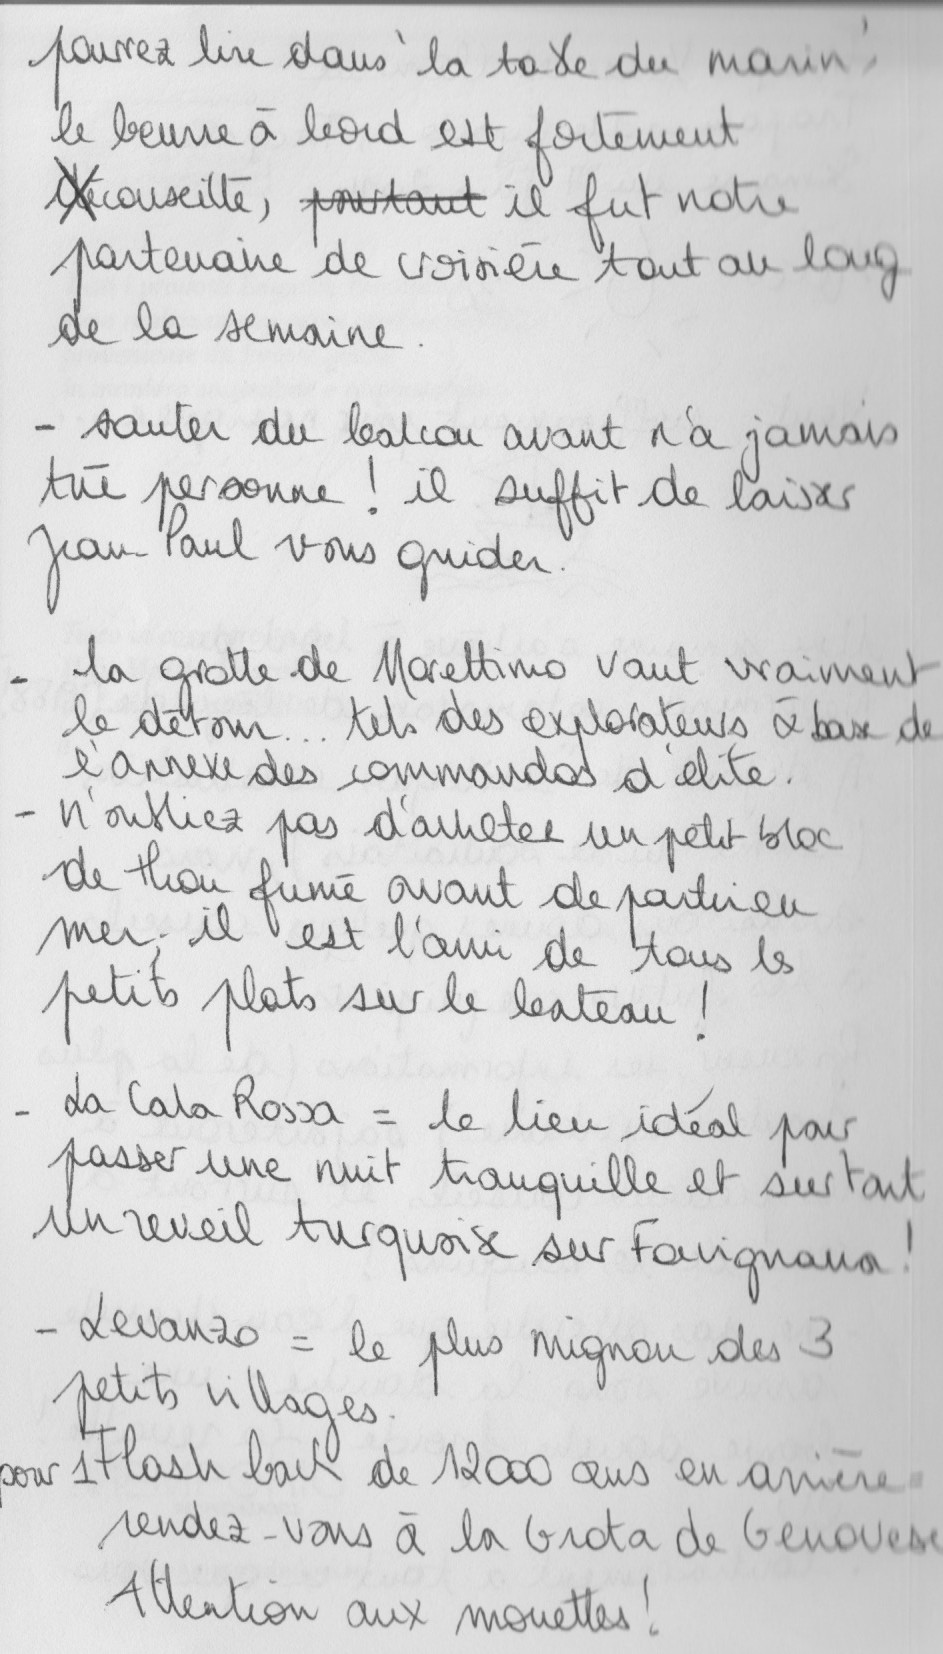 pourrez lire dans 'la taxe du marin',
le beurre à bord est fortement
déconseillé, pourtant il fut notre
partenaire de croisière tout au long
de la semaine.
- sauter du balcon avant n'a jamais
tué personne ! il suffit de laisser
Jean-Paul vous guider.
- la grotte de Marettimo vaut vraiment
le détour... tels des explorateurs à base de
l'annexe des commandos d'élite.
- n'oubliez pas d'acheter un petit bloc
de thon fumé avant de partir en
mer, il est l'ami de tous les
petits plats sur le bateau !
- La Cala Rossa = le lieu idéal pour
passer une nuit tranquille et surtout
un reveil turquoise sur Favignana !
- Levanzo = le plus mignon des 3
petits villages.
pour 1 Flash back de 12000 ans en arrière
rendez-vous à la Grota de Genovese
Attention aux mouettes !